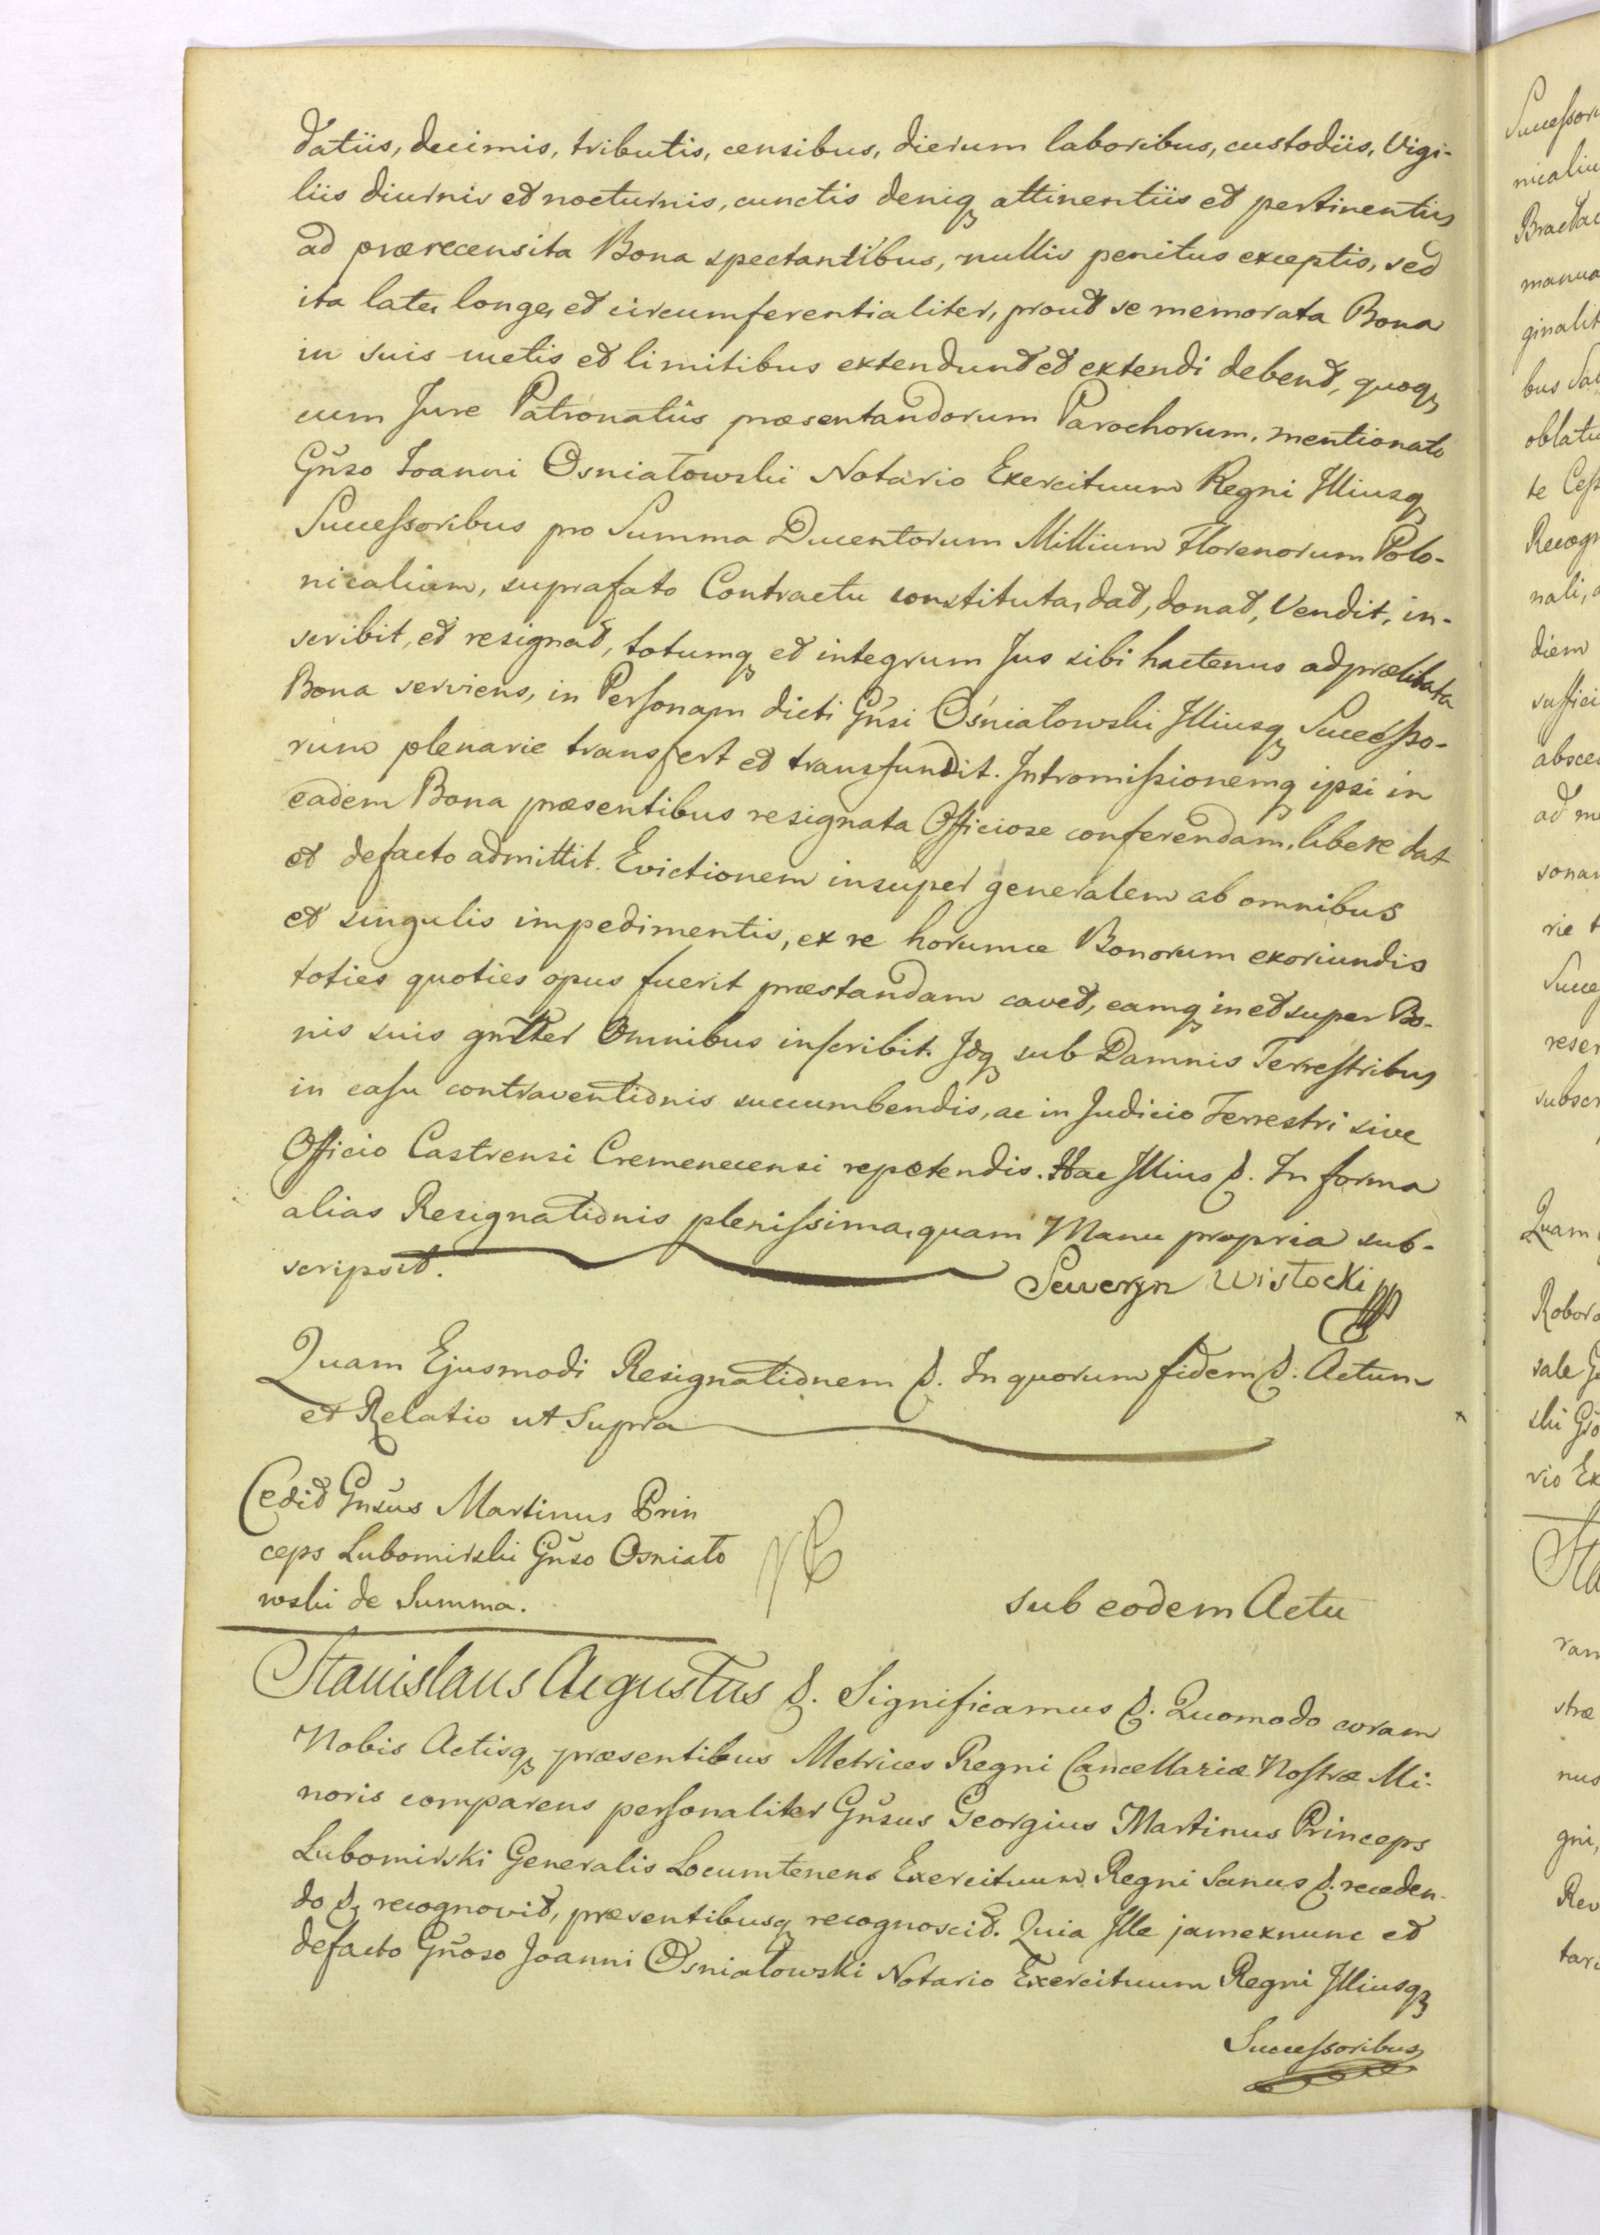 datiis, decimis, tributis, censibus, dierum laboribus, custodiis, Vigi-
liis diurnis et nocturnis, cunctis deniq attinentiis et pertinentiis
ad prærecensita Bona spectantibus, nullis penitus exceptis, sed
ita late, longe, et circumferentialiter, prout se memorata Bona
in suis metis et limitibus extendunt et extendi debent, quoq
cum Jure Patronatûs præsentandorum Parochorum, mentionato
Gnso Joanni Osniałowski Notario Exercituum Regni Illiusq
Successoribus pro Summa Ducentorum Millium Florenorum Polo-
nicalium, suprafato Contractu constituta, dat, donat, Vendit, in-
scribit, et resignat, totumq et integrum Jus sibi hactenus ad prælibata
Bona serviens, in Personam dicti Gnsi Osniałowski Illiusq Successo-
rum plenarie transfert et transfundit. Intromissionemq ipsi in
eadem Bona præsentibus resignata Officiose conferendam, libere dat
et defacto admittit. Evictionem insuper generalem ab omnibus
et singulis impedimentis, ex re horumce Bonorum exoriundis
toties quoties opus fuerit præstandam cavet, eamq in et super Bo-
nis suis gnlter Omnibus inscribit. Idq sub Damnis Terrestribus
in casu contraventionis succumbendis, ac in Judicio Terrestri sive
Officio Castrensi Cremenecensi repetendis. Hac Illius &. In forma
alias Resignationis plenissima, quam Manu propria sub-
scripsit.
Seweryn Wisłocki mpp
Quam Ejusmodi Resignationem &. In quorum fidem &. Actum
et Relatio ut Supra
Cedit Gnsus Martinus Prin
ceps Lubomirski Gnso Osniało
wski de Summa.
sub eodem Actu
Stanislaus Augustus &. Significamus &. Quomodo coram
Nobis Actisq præsentibus Metrices Regni Cancellariæ Nostræ Mi-
noris comparens personaliter Gnsus Georgius Martinus Princeps
Lubomirski Generalis Locumtenens Exercituum Regni Sanus &. receden-
do &. recognovit, præsentibusq recognoscit. Quia Ille jam exnunc et
defacto Gnoso Joanni Osniałowski Notario Exercituum Regni Illiusq
Successoribus